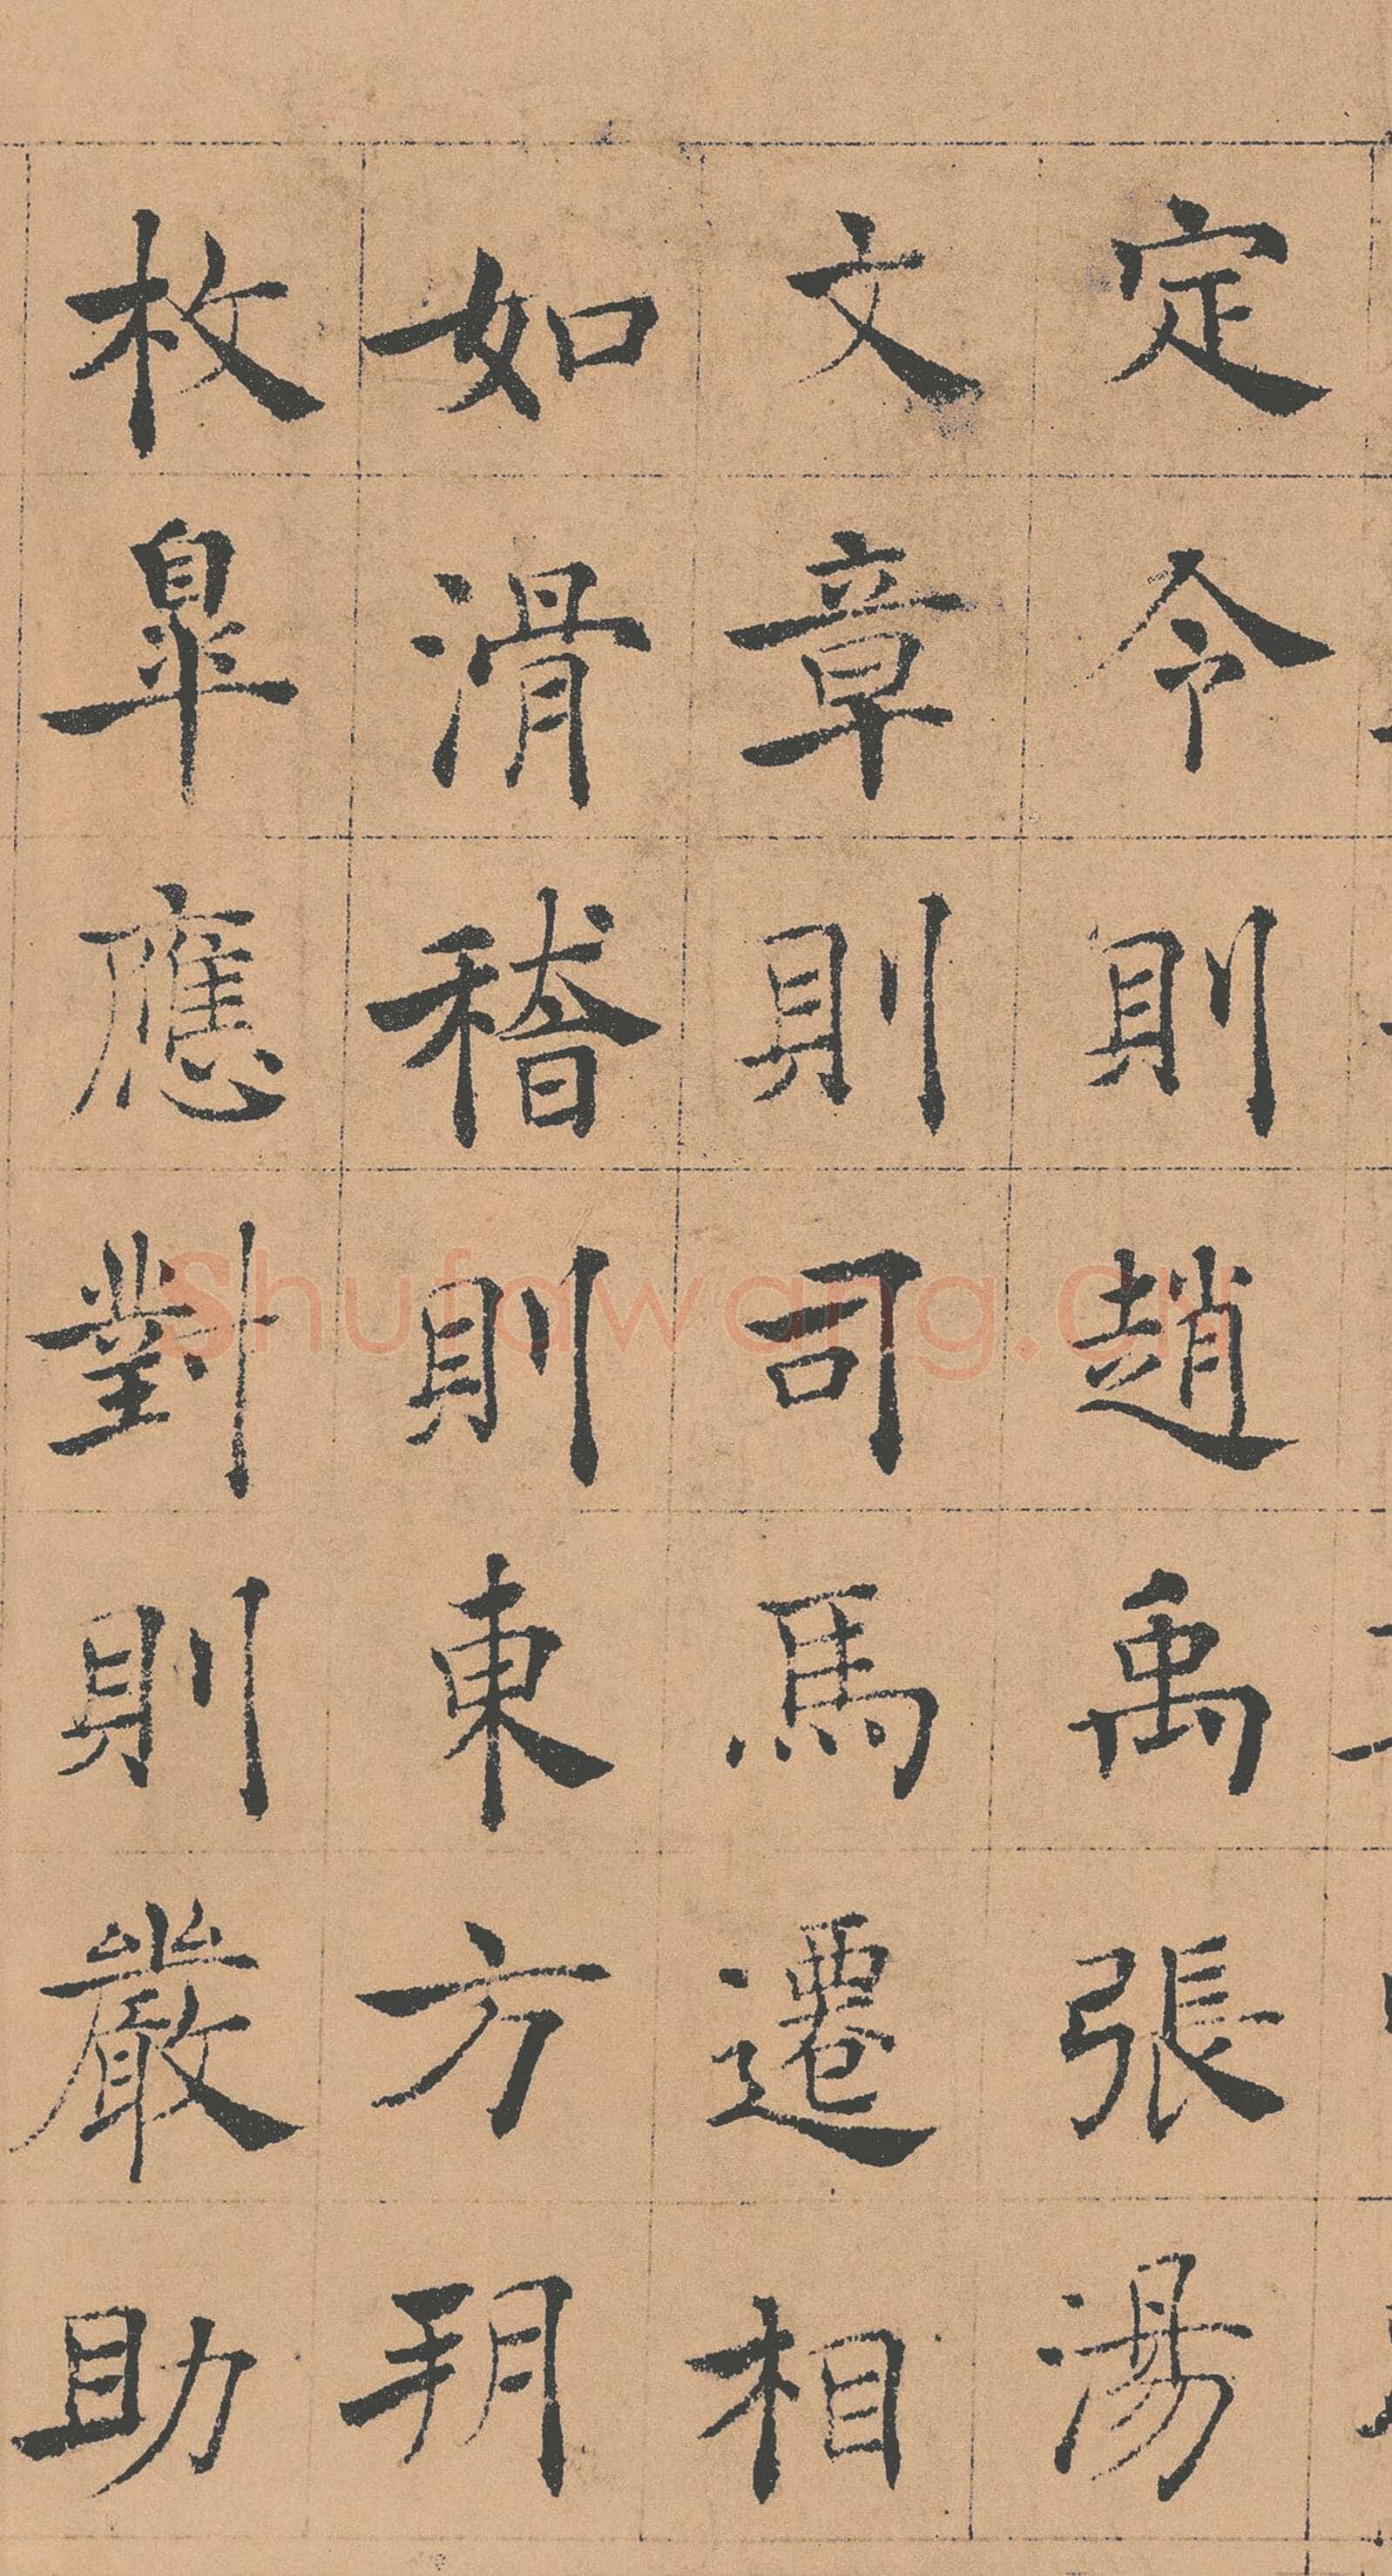 定令則趙禹張湯
文章則司馬遷相
如滑稽則東方朔
枚皐應對則嚴助
Shufawang.cn